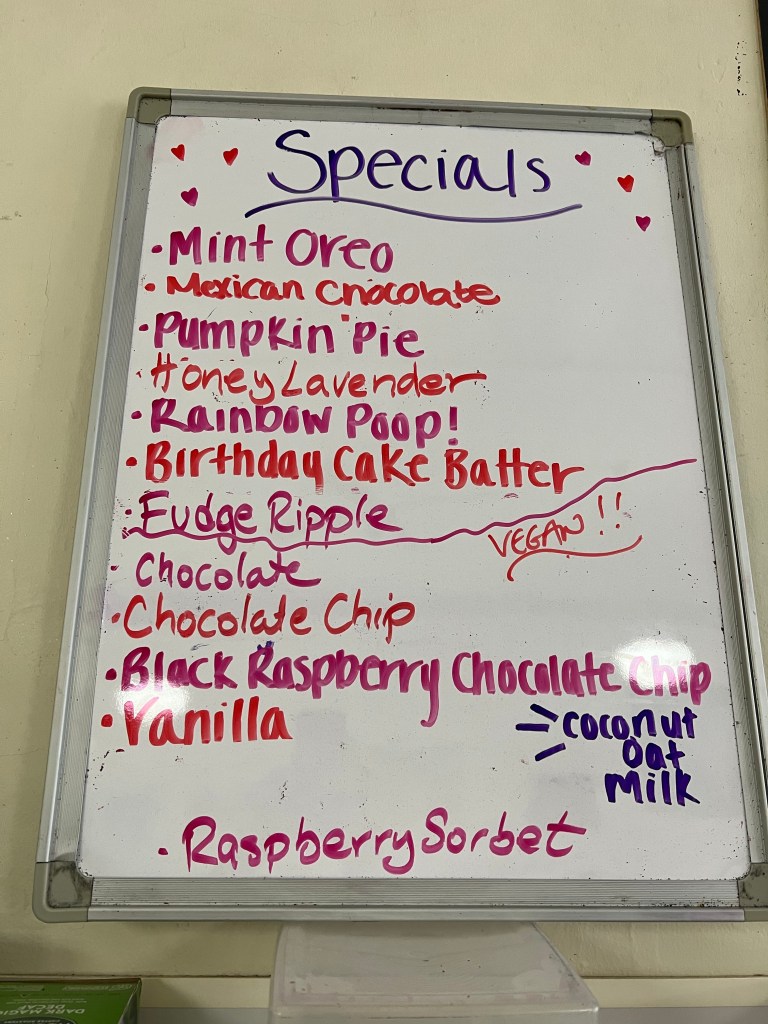 Specials
· Mint Oreo
· Mexican Chocolate
· Pumpkin Pie
· Honey Lavender
· Rainbow Poop!
· Birthday Cake Batter
· Fudge Ripple
VEGAN!!
· Chocolate
· Chocolate Chip
· Black Raspberry Chocolate Chip
· Vanilla
coconut
oat
milk
· Raspberry Sorbet
DARK MAGIC
DECAF